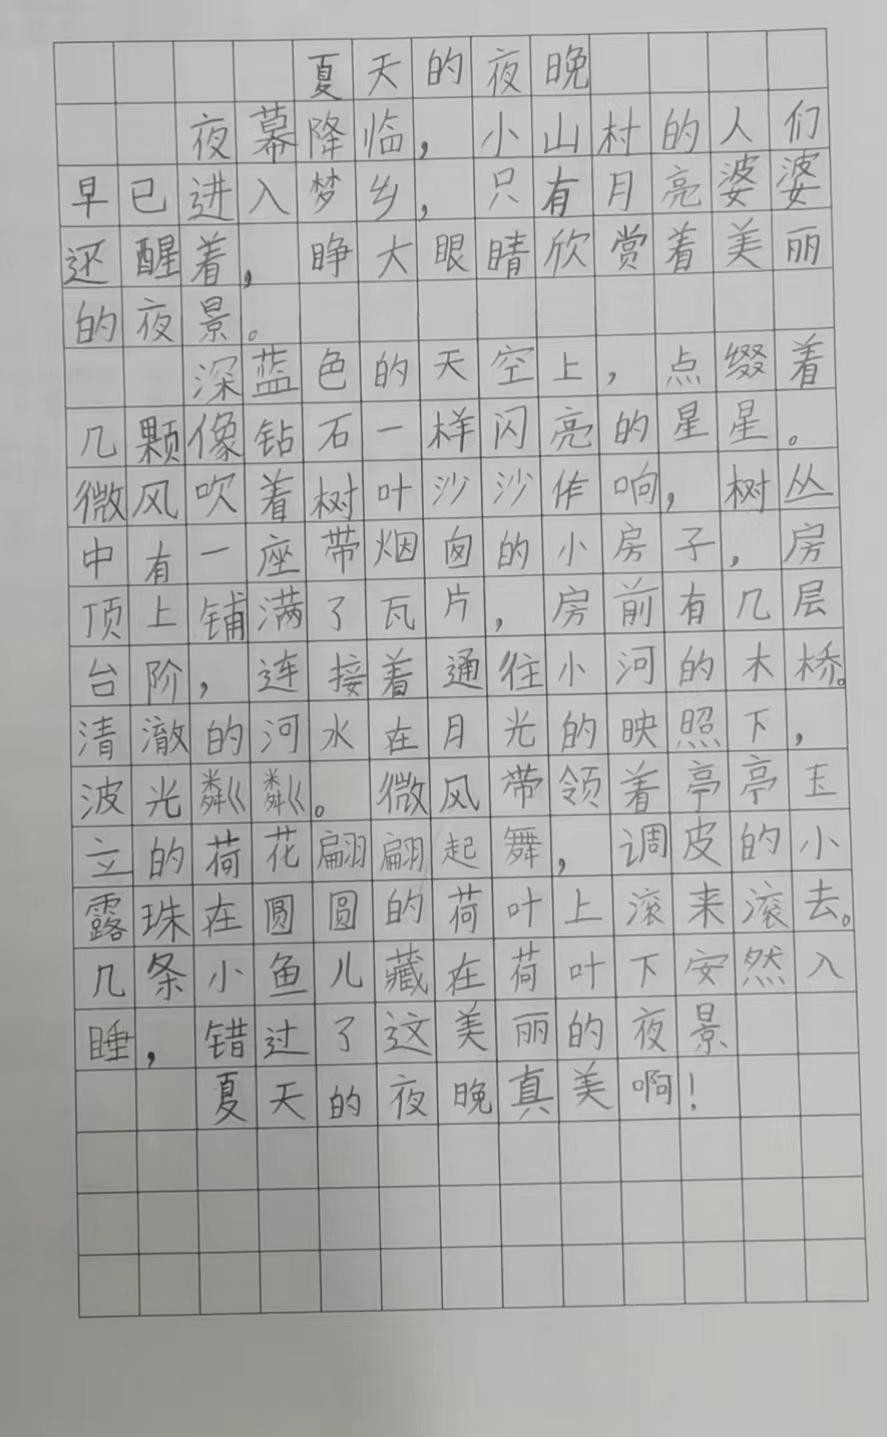 夏天的夜晚
夜幕降临，小山村的人们
早已进入梦乡，只有月亮婆婆
还醒着，睁大眼睛欣赏着美丽
的夜景。
深蓝色的天空上，点缀着
几颗像钻石一样闪亮的星星。
微风吹着树叶沙沙作响，树丛
中有一座带烟囱的小房子，房
顶上铺满了瓦片，房前有几层
台阶，连接着通往小河的木桥。
清澈的河水在月光的映照下，
波光粼粼。微风带领着亭亭玉
立的荷花翩翩起舞，调皮的小
露珠在圆圆的荷叶上滚来滚去。
几条小鱼儿藏在荷叶下安然入
睡，错过了这美丽的夜景
夏天的夜晚真美啊！